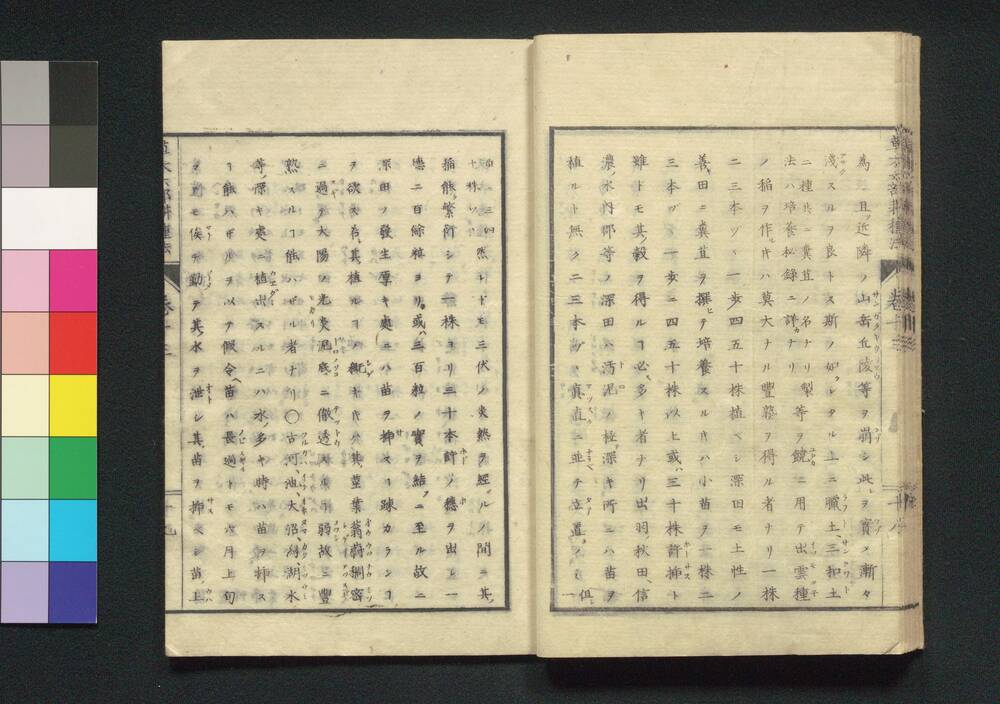 為且ッ近隣ノ山岳丘陵等ヲ崩シ此ヲ買メ漸々
淺スルヲ良トス斯ノ如クシタル上ニ臘土、三和土
二種共ニ糞苴ノ名ナリ製法ハ培養秘錄ニ詳カナリ等ヲ饒ニ用テ出雲種
ノ稲ヲ作ルキハ莫大ナル豐熟ヲ得ル者ナリ一株
二三本ヅヽ一歩四五十株植ベシ深田モ土性ノ
義田ニ糞苴ヲ撰ヒ培養スルキハ小苗ヲ一株ニ
三本ヅヽ一歩ニ四五十株以上或ハ三十株許挿ト
雖トモ其穀ヲ得ルコ必多キ者ナリ出羽、秋田、信
濃水内郡等ノ深田ハ濘泥ノ極テ深キ所ニハ苗ヲ
植ルト無ク二三本ヅヽ真直ニ並テ立置ノミ但シ一
十株ヅヽ三四然レドモ三伏ノ炎熱ヲ經ルノ間ニ其
稲能繁衍シテ一株ヨリ三十本許ノ穗ヲ出シ一
穗ニ百餘粒ヨリ或ハ三百粒ノ實ヲ結フニ至ル故ニ
深田ノ發生厚キ處ニハ苗ヲ挿スコ疎カランコ
ヲ欲ス若其植ルコ概キキハ其莖葉蓊蔚稠密
ニ過テ太陽ノ光炎泥底ニ徹透スルコ弱故ニ豐
熟スルコ能ハザル者ナリ〇古河沼大沼湖水
等ノ深キ處ニ植出スルニハ水ノ多キ時ハ苗ヲ挿ス
コ能ハザルヲ以テ假令ヘ苗ハ長過トモ六月上旬
ヲモ俟テ勤テ其水ヲ泄シ其苗ヲ挿ベシ苗ノ上
草木六部耕種法 卷十三 十九